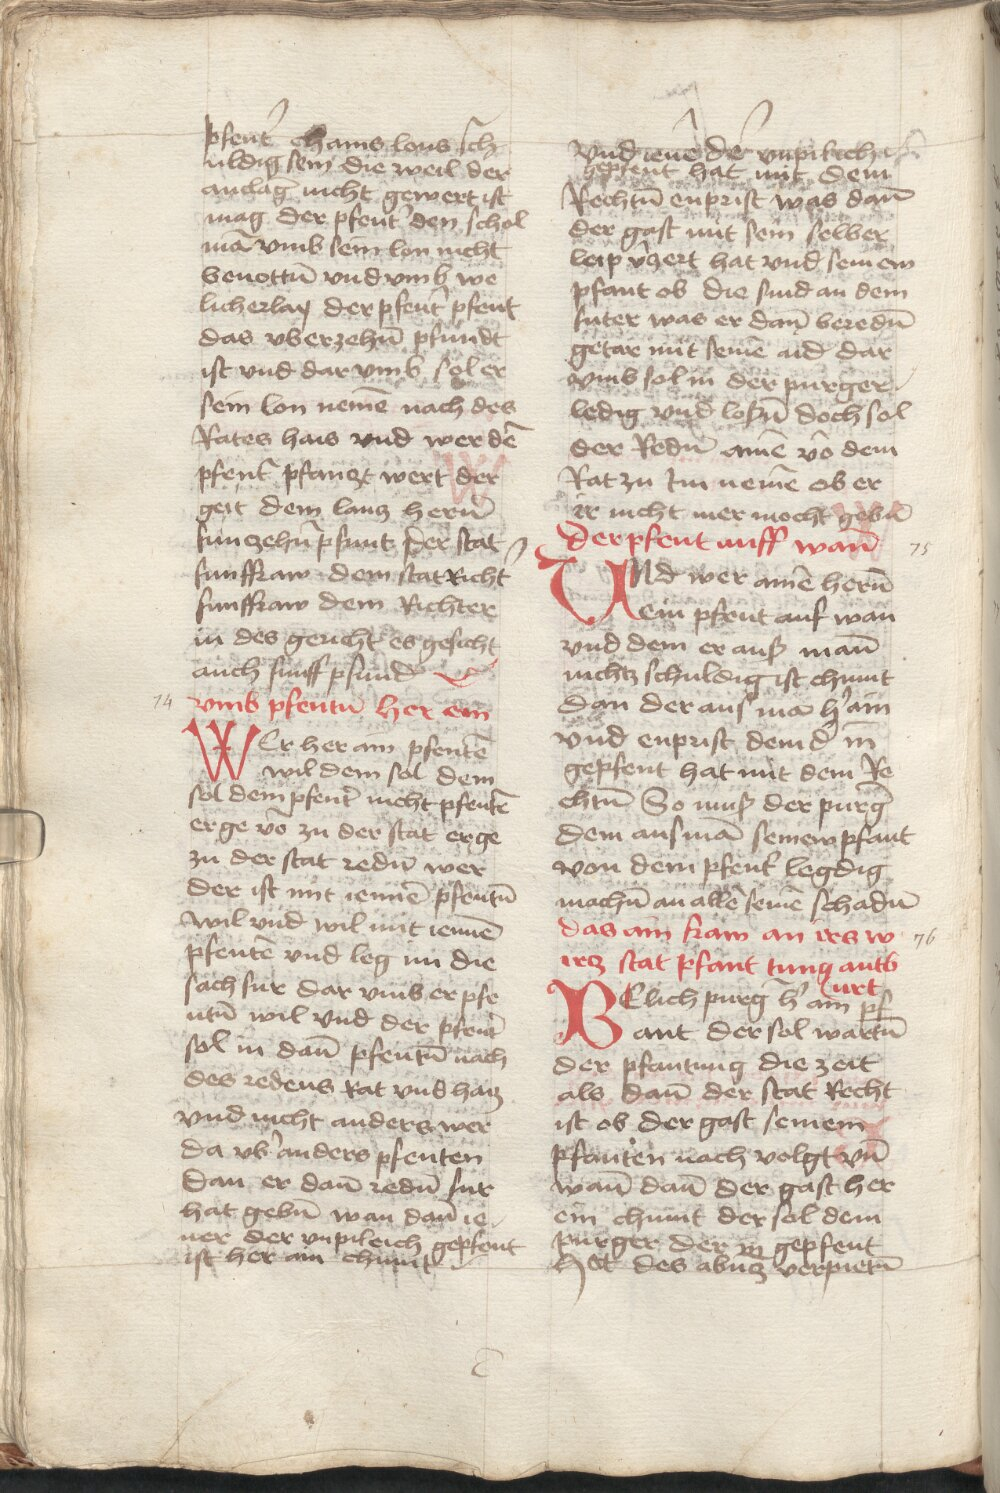 pfent' chains lons sch
uldig sein die weil der
anclag nicht gewert ist
mag der pfent' den schol
nnā vmb sein lon nicht
benottn̄ vnd vmb we
licherlaÿ der pfent' pfent
das vber zehn̄ pfundt
ist vnd dar vmb sol er
sein lon nemē nach des
Rates hais vnd werdē
pfent' pfanzt wert der
geit dem lantz herrn̄
funczehn̄ pfunt der stat
funffzaw dem stat Richt'
funffzaw dem Richter
in des gericht es geschicht
auch funff pfund
74
vmb pfentn̄ her ein
WEr her ain pfentē
wil dem sol dem
sol dem pfent' nicht pfentē
er ge vō zu der stat er ge
zu der stat redn̄ wer
der ist mit iennē pfentn̄
wil vnd wil mit iennē
pfentē vnd leg im die
sach fur dar vmb er pfe
ntn̄ wil vnd der pfent'
sol in dan̄ pfentn̄ nach
des redens Rat vnd haiz
vnd nicht anders wer
da vb' anders pfenten
dan er dan̄ redn̄ fur
hat gebn̄ wan dan̄ ie
ner der vnpileich gepfent
ist her ain chumt
vnd ienē der vnpilreich
gepfent hat mit dem
Rechtn̄ enprist was dan̄
der gast mit sein selber
leip v'zert hat vnd seinem
pfant ob die sind an dem
futer was er dan̄ beredn̄
getar mit seinē aid dar
vmb sol in der purger
ledig vnd losn̄ doch sol
der Redn̄ ainē vō dem
Rat zu Im nemē ob er
ir nicht mer mocht gebn̄
der pfent auff wan̄
75
VNd wer ainē herrn̄
ein pfent auf wan
vnd dem er auß man̄
nichtz schuldig ist chumt
dan der aus mā h'ain
vnd enprist dem d' in
gepfent hat mit dem Re
chtn̄ So muß der purg'
dem ausmā seinew pfant
von dem pfent' legdig
machn̄ an allē seinē schadn̄
das ain fraw an irs w
76
irtz stat pfant tung antb
urt
BElich purg' h'ain pf
ant der sol wartn̄
der pfantung die zeit
als dan̄ der stat Recht
ist ob der gast seinem
pfanten nach volgt vn̄
wan̄ dan̄ der gast her
ein chumt der sol dem
purger der in gepfent
Hat des abntz verpietn̄